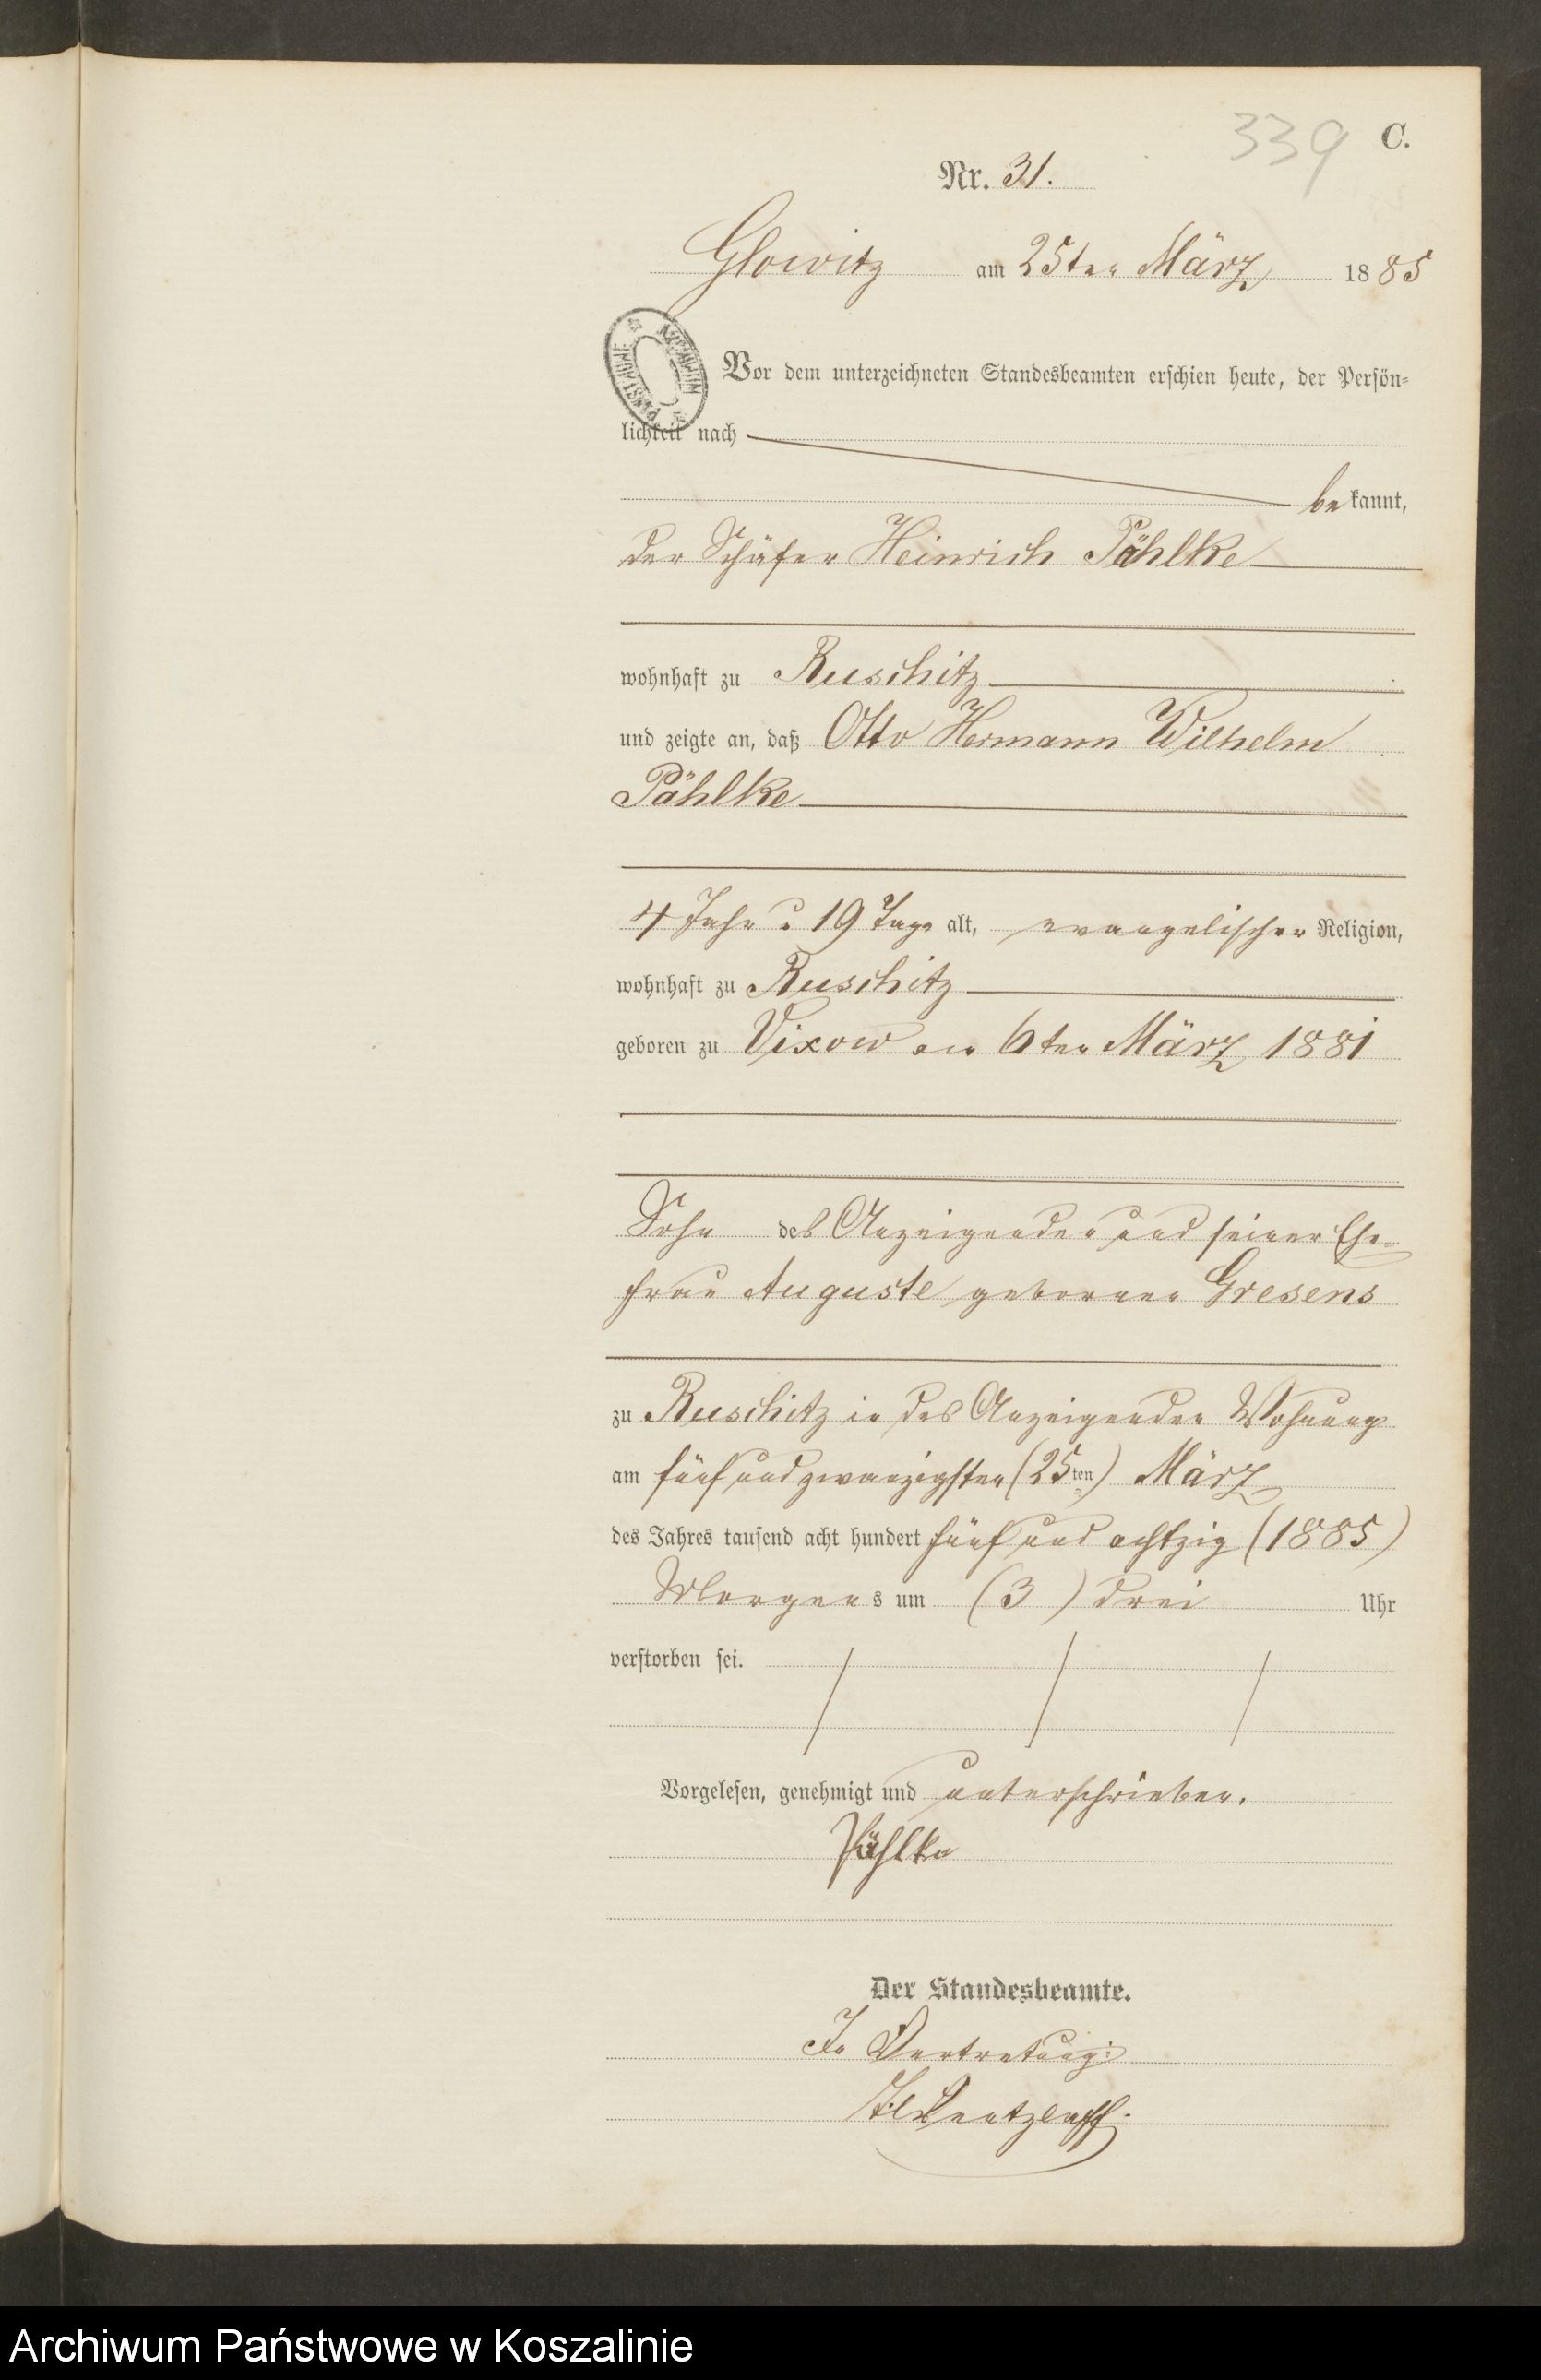 339 C.
Nr. 31.
Glowitz am 25ten März 1885
Vor dem unterzeichneten Standesbeamten erschien heute, der Persön=
lichkeit nach
bekannt,
der Schäfer Heinrich Pählke
wohnhaft zu Ruschitz
und zeigte an, daß Otto Hermann Wilhelm
Pählke
4 Jahr u 19 Tage alt, evangelischer Religion,
wohnhaft zu Ruschitz
geboren zu Vixow am 6ten März 1881
Sohn des Anzeigenden und seiner Ehe-
frau Auguste geborenen Gresens
zu Ruschitz in des Anzeigenden Wohnung
am fünf und zwanzigsten (25ten) März
des Jahres tausend acht hundert fünf und achtzig (1885)
Morgens um (3) drei Uhr
verstorben sei.
Vorgelesen, genehmigt und unterschrieben.
Pählke
Der Standesbeamte.
In Vertretung:
Archiwum Państwowe w Koszalinie